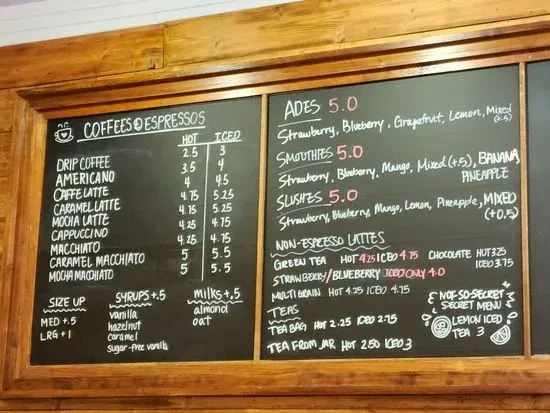 COFFEES & ESPRESSOS
HOT ICED
DRIP COFFEE 2.5 3
AMERICANO 3.5 4
CAFFE LATTE 4 4.5
CARAMEL LATTE 4.75 5.25
MOCHA LATTE 4.75 5.25
CAPPUCCINO 4.25 4.75
MACCHIATO 4.25 4.75
CARAMEL MACCHIATO 5 5.5
MOCHA MACCHIATO 5 5.5
SIZE UP
MED +.5
LRG +1
SYRUPS +.5
vanilla
hazelnut
caramel
sugar-free vanilla
milks +.5
almond
oat
ADES 5.0
Strawberry, Blueberry, Grapefruit, Lemon, Mixed (+.5)
SMOOTHIES 5.0
Strawberry, Blueberry, Mango, Mixed (+.5), BANANA
PINEAPPLE
SLUSHES 5.0
Strawberry, Blueberry, Mango, Lemon, Pineapple, MIXED
(+0.5)
NON-ESPRESSO LATTES
GREEN TEA HOT 4.25 ICED 4.75
STRAWBERRY/BLUEBERRY ICED ONLY 4.0
MULTI GRAIN HOT 4.25 ICED 4.75
CHOCOLATE HOT 3.25
ICED 3.75
TEAS
TEA BAG HOT 2.25 ICED 2.75
TEA FROM JAR HOT 2.50 ICED 3
NOT-SO-SECRET
SECRET MENU
LEMON ICED
TEA 3